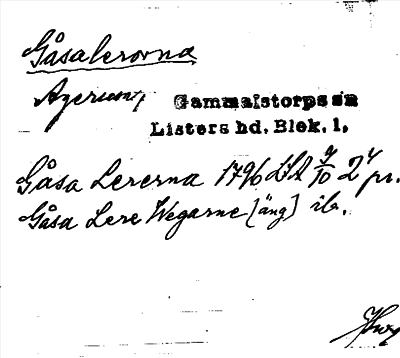 Gåsalerorna
Agerum,
Gammalstorps sn
Listers hd. Blek. l.
Gåsa Lererna 1796 LSA 7/10 2⁴ pr.
Gåsa Lere Wegarne [äng] ib.